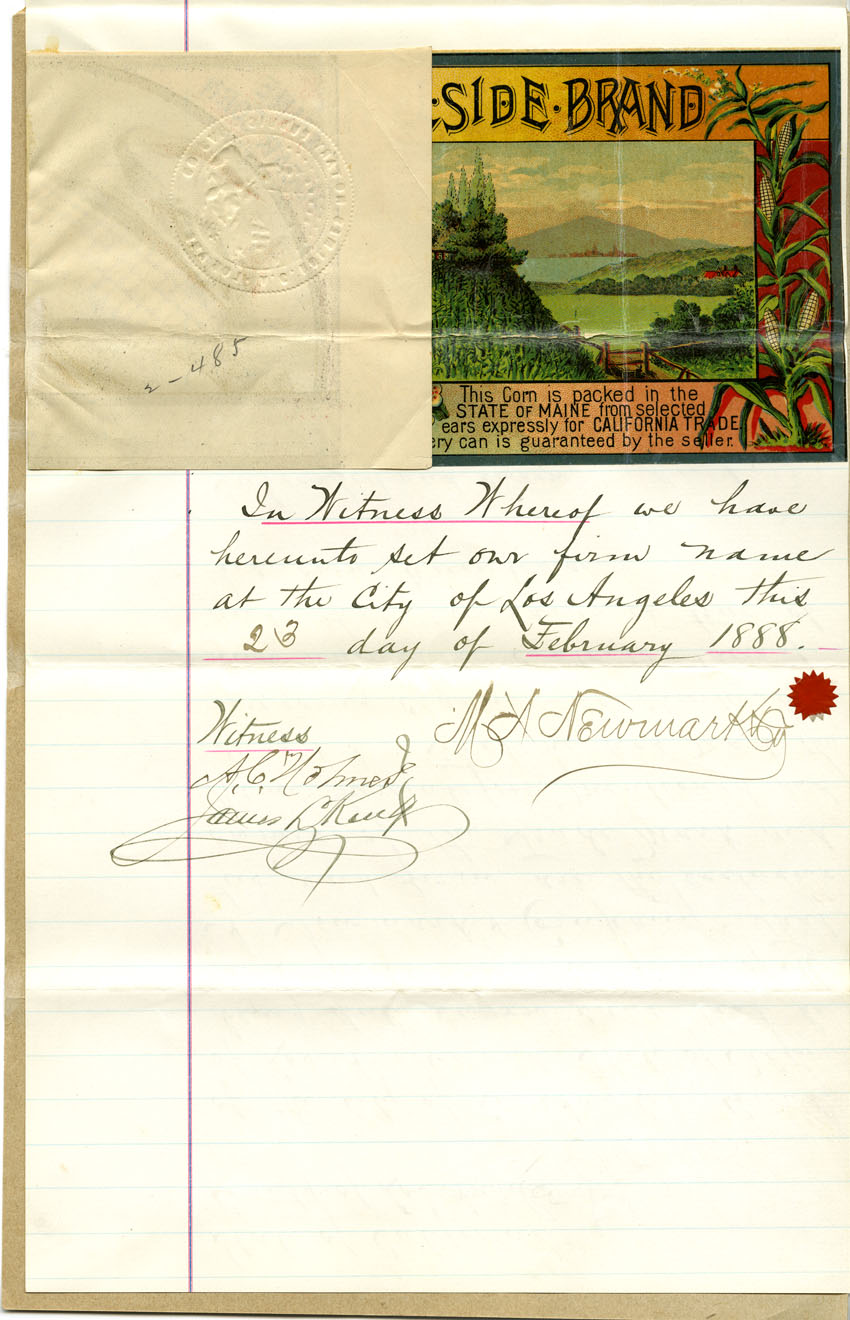 SIDE·BRAND
This Corn is packed in the
STATE OF MAINE from selected
ears expressly for CALIFORNIA TRADE
ery can is guaranteed by the seller.
2-485
In Witness Whereof we have
hereunto set our firm name
at the City of Los Angeles this
23 day of February 1888.
Witness
M A Newmark & Co
A. C. Holmes
James